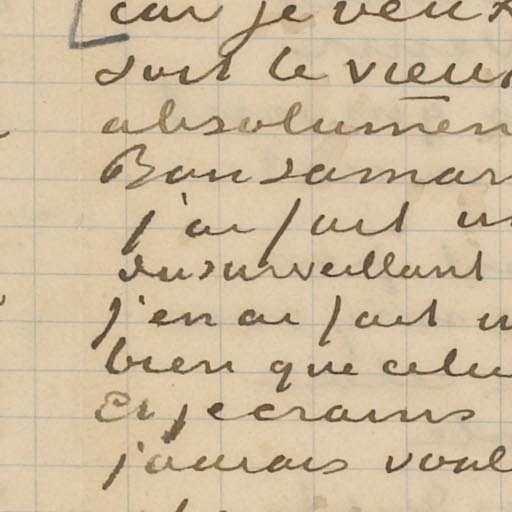 car je veux
soit le vieux
absolumen
Bon samar
j'ai fait un
du surveillant
j'en ai fait un
bien que celui
et je crains
j'aurais voul